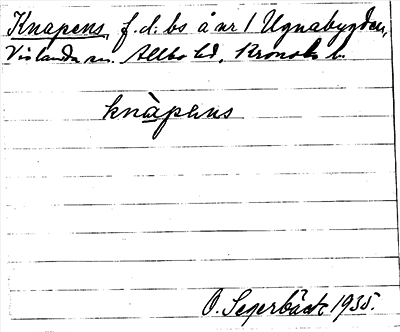 Knapens, f.d. bs å nr 1 Ugnabygden,
Vislanda sn. Allbo hd, Kronob. l.
knàpens
O. Segerbäck 1935.